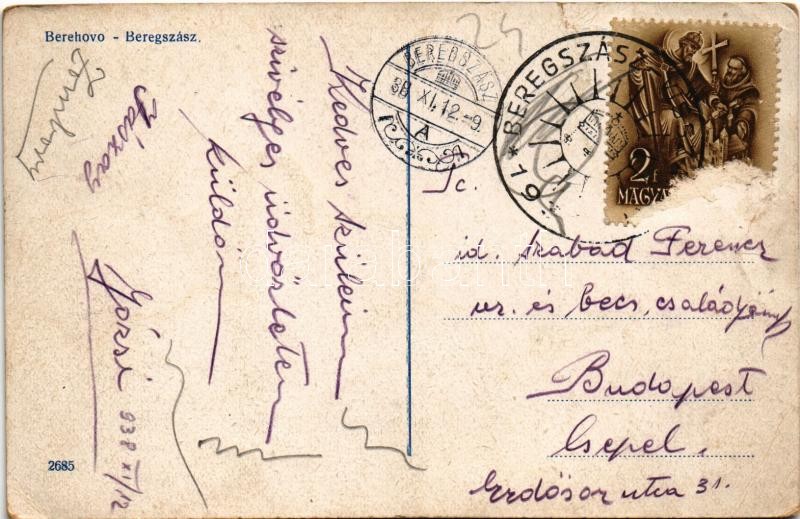 Berehovo - Beregszász.
Kedves Szüleim
szivélyes üdvözletem
küldöm
Józsi 938 XI/12
Jászay
BEREGSZÁSZ
38 XI. 12.-9.
A
BEREGSZÁSZ
19
24
2 f
MAGYA
id. Szabad Ferencz
ur. és becs. családjának
Budapest
Csepel.
Erdősor utca 31.
2685